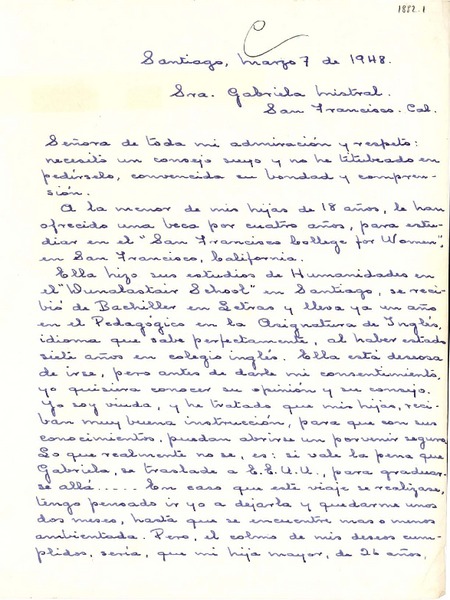 1882.1
Santiago, marzo 7 de 1948.
Sra. Gabriela Mistral.
San Francisco. Cal.
Señora de toda mi admiración y respeto:
necesito un consejo suyo y no he titubeado en
pedírselo, convencida su bondad y compren-
sión.
A la menor de mis hijas de 18 años, le han
ofrecido una beca por cuatro años, para estu-
diar en el "San Francisco College for Women",
en San Francisco, California.
Ella hizo sus estudios de Humanidades en
el "Dunalastair School" en Santiago, se reci-
bió de Bachiller en Letras y lleva ya un año
en el Pedagógico en la Asignatura de Inglés,
idioma que sabe perfectamente, al haber estado
siete años en colegio inglés. Ella está deseosa
de irse, pero antes de darle mi consentimiento,
yo quisiera conocer su opinión y su consejo.
Yo soy viuda, y he tratado que mis hijas, reci-
ban muy buena instrucción, para que con sus
conocimientos, puedan abrirse un porvenir seguro.
Lo que realmente no se, es: si vale la pena que
Gabriela, se traslade a E.E.U.U., para graduar-
se allá..... En caso que este viaje se realizase,
tengo pensado ir yo a dejarla y quedarme unos
dos meses, hasta que se encuentre mas o menos
ambientada. Pero, el colmo de mis deseos cum-
plidos, sería, que mi hija mayor, de 26 años,